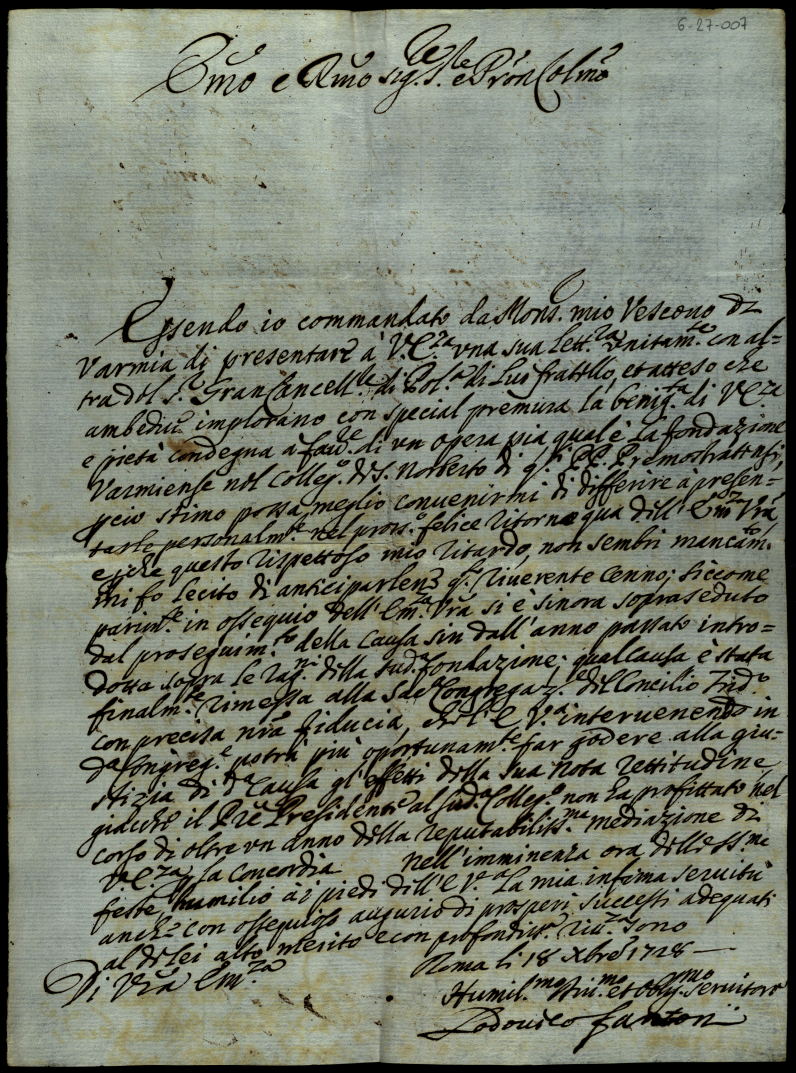 6-27-007
Em̃o e Rm̃o Sig.re S.re e Prõn Colm̃o
Essendo io commandato da Mons. mio Vescovo di
Varmia di presentare à V.E.za vna sua lett.ra vnitam.te con al=
tra del S.r Gran Cancell.re di Pol.a di Lui fratello, et atteso che
ambedue implorano con special premura la benig.tà di V.E.za
e pietà condegna à fav.re di vn opera pia qual'è la fondazione
Varmiense nel Colleg.o di S. Norberto di q.ti PP. Premostratensi,
perciò stimo possa meglio convenirmi di differire à presen=
tarle personalm.te nel pross. felice ritorno qua dell'Em.za Vrã
e che questo rispettoso mio ritardo, non sembri mancam.to,
mi fo lecito di anticiparlene q.to riverente cenno; siccome
parim.te in ossequio dell'Em.za Vrã si è sinora sopraseduto
dal proseguim.to della Causa sin dall'anno passato intro=
dotta sopra le rag.ni della sud.a fondazione; qual Causa è stata
finalm.te rimessa alla Sac. Congregaz.e del Concilio Trid.o
con precisa nrã fiducia, che l'E.V.a intervenendo in
d.a Congreg.e potrà più oportunam.te far godere alla giu=
stizia di d.a Causa gl'effetti della sua nota rettitudine,
giacche il Prẽ Presidente al sud.o Colleg.o non ha profittato nel
corso di oltre vn anno della reputabiliss.ma mediazione di
V.E.za, p la concordia nell'imminenza ora delle SS.me
feste, humilio à i piedi dell'E.V.a la mia infima servitù
anche con ossequioso augurio di prosperi successi adequati
al di lei alto merito e con profondiss.a riv.za sono
Di Vrã Em.za
Roma li 18 Xbrẽ 1728
Humil.mo Div.mo et Obblig.mo Servitore
Lodovico Fantoni